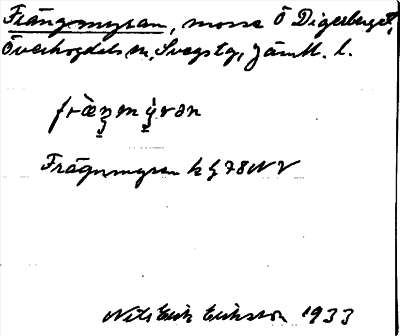 Frängsmyran, mosse Ö Digerberget,
Överhogdals sn, Svegs tg, Jämtl. l.
Frägnmyran k g 78 NV
Nils Erik Eriksson 1933